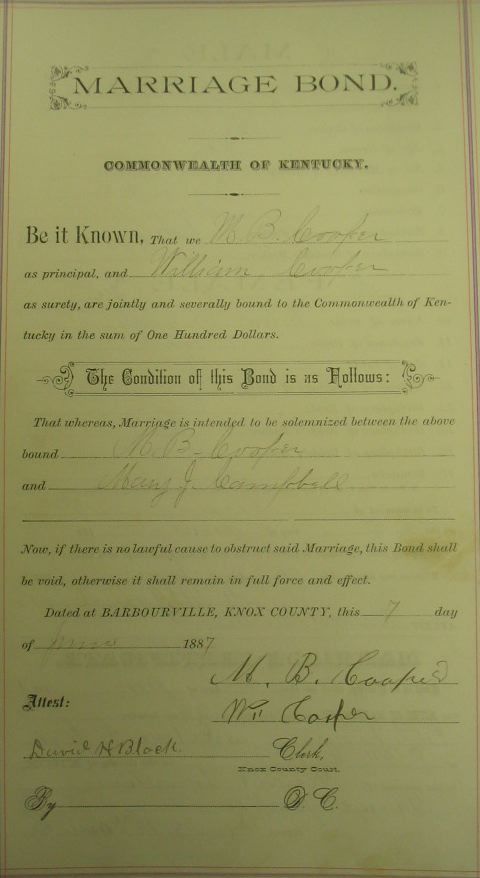 MARRIAGE BOND.
COMMONWEALTH OF KENTUCKY.
Be it Known, That we M. B. Cooper
as principal, and William Cooper
as surety, are jointly and severally bound to the Commonwealth of Ken-
tucky in the sum of One Hundred Dollars.
The Condition of this Bond is as Follows:
That whereas, Marriage is intended to be solemnized between the above
bound M. B. Cooper
and Mary J. Campbell
Now, if there is no lawful cause to obstruct said Marriage, this Bond shall
be void, otherwise it shall remain in full force and effect.
Dated at BARBOURVILLE, KNOX COUNTY, this 7 day
of 1887
M. B. Cooper
Attest: Wm Cooper
David H Black. Clerk,
Knox County Court.
By D. C.